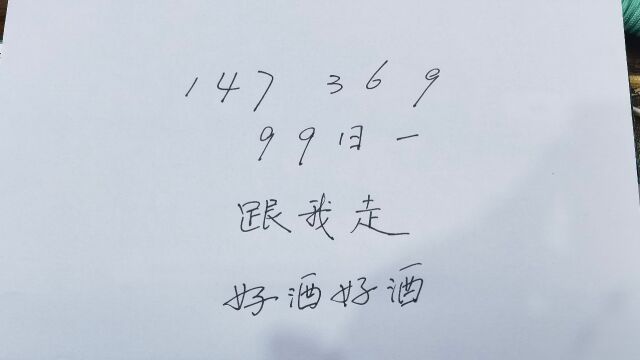 147 369
99日一
跟我走
好酒好酒